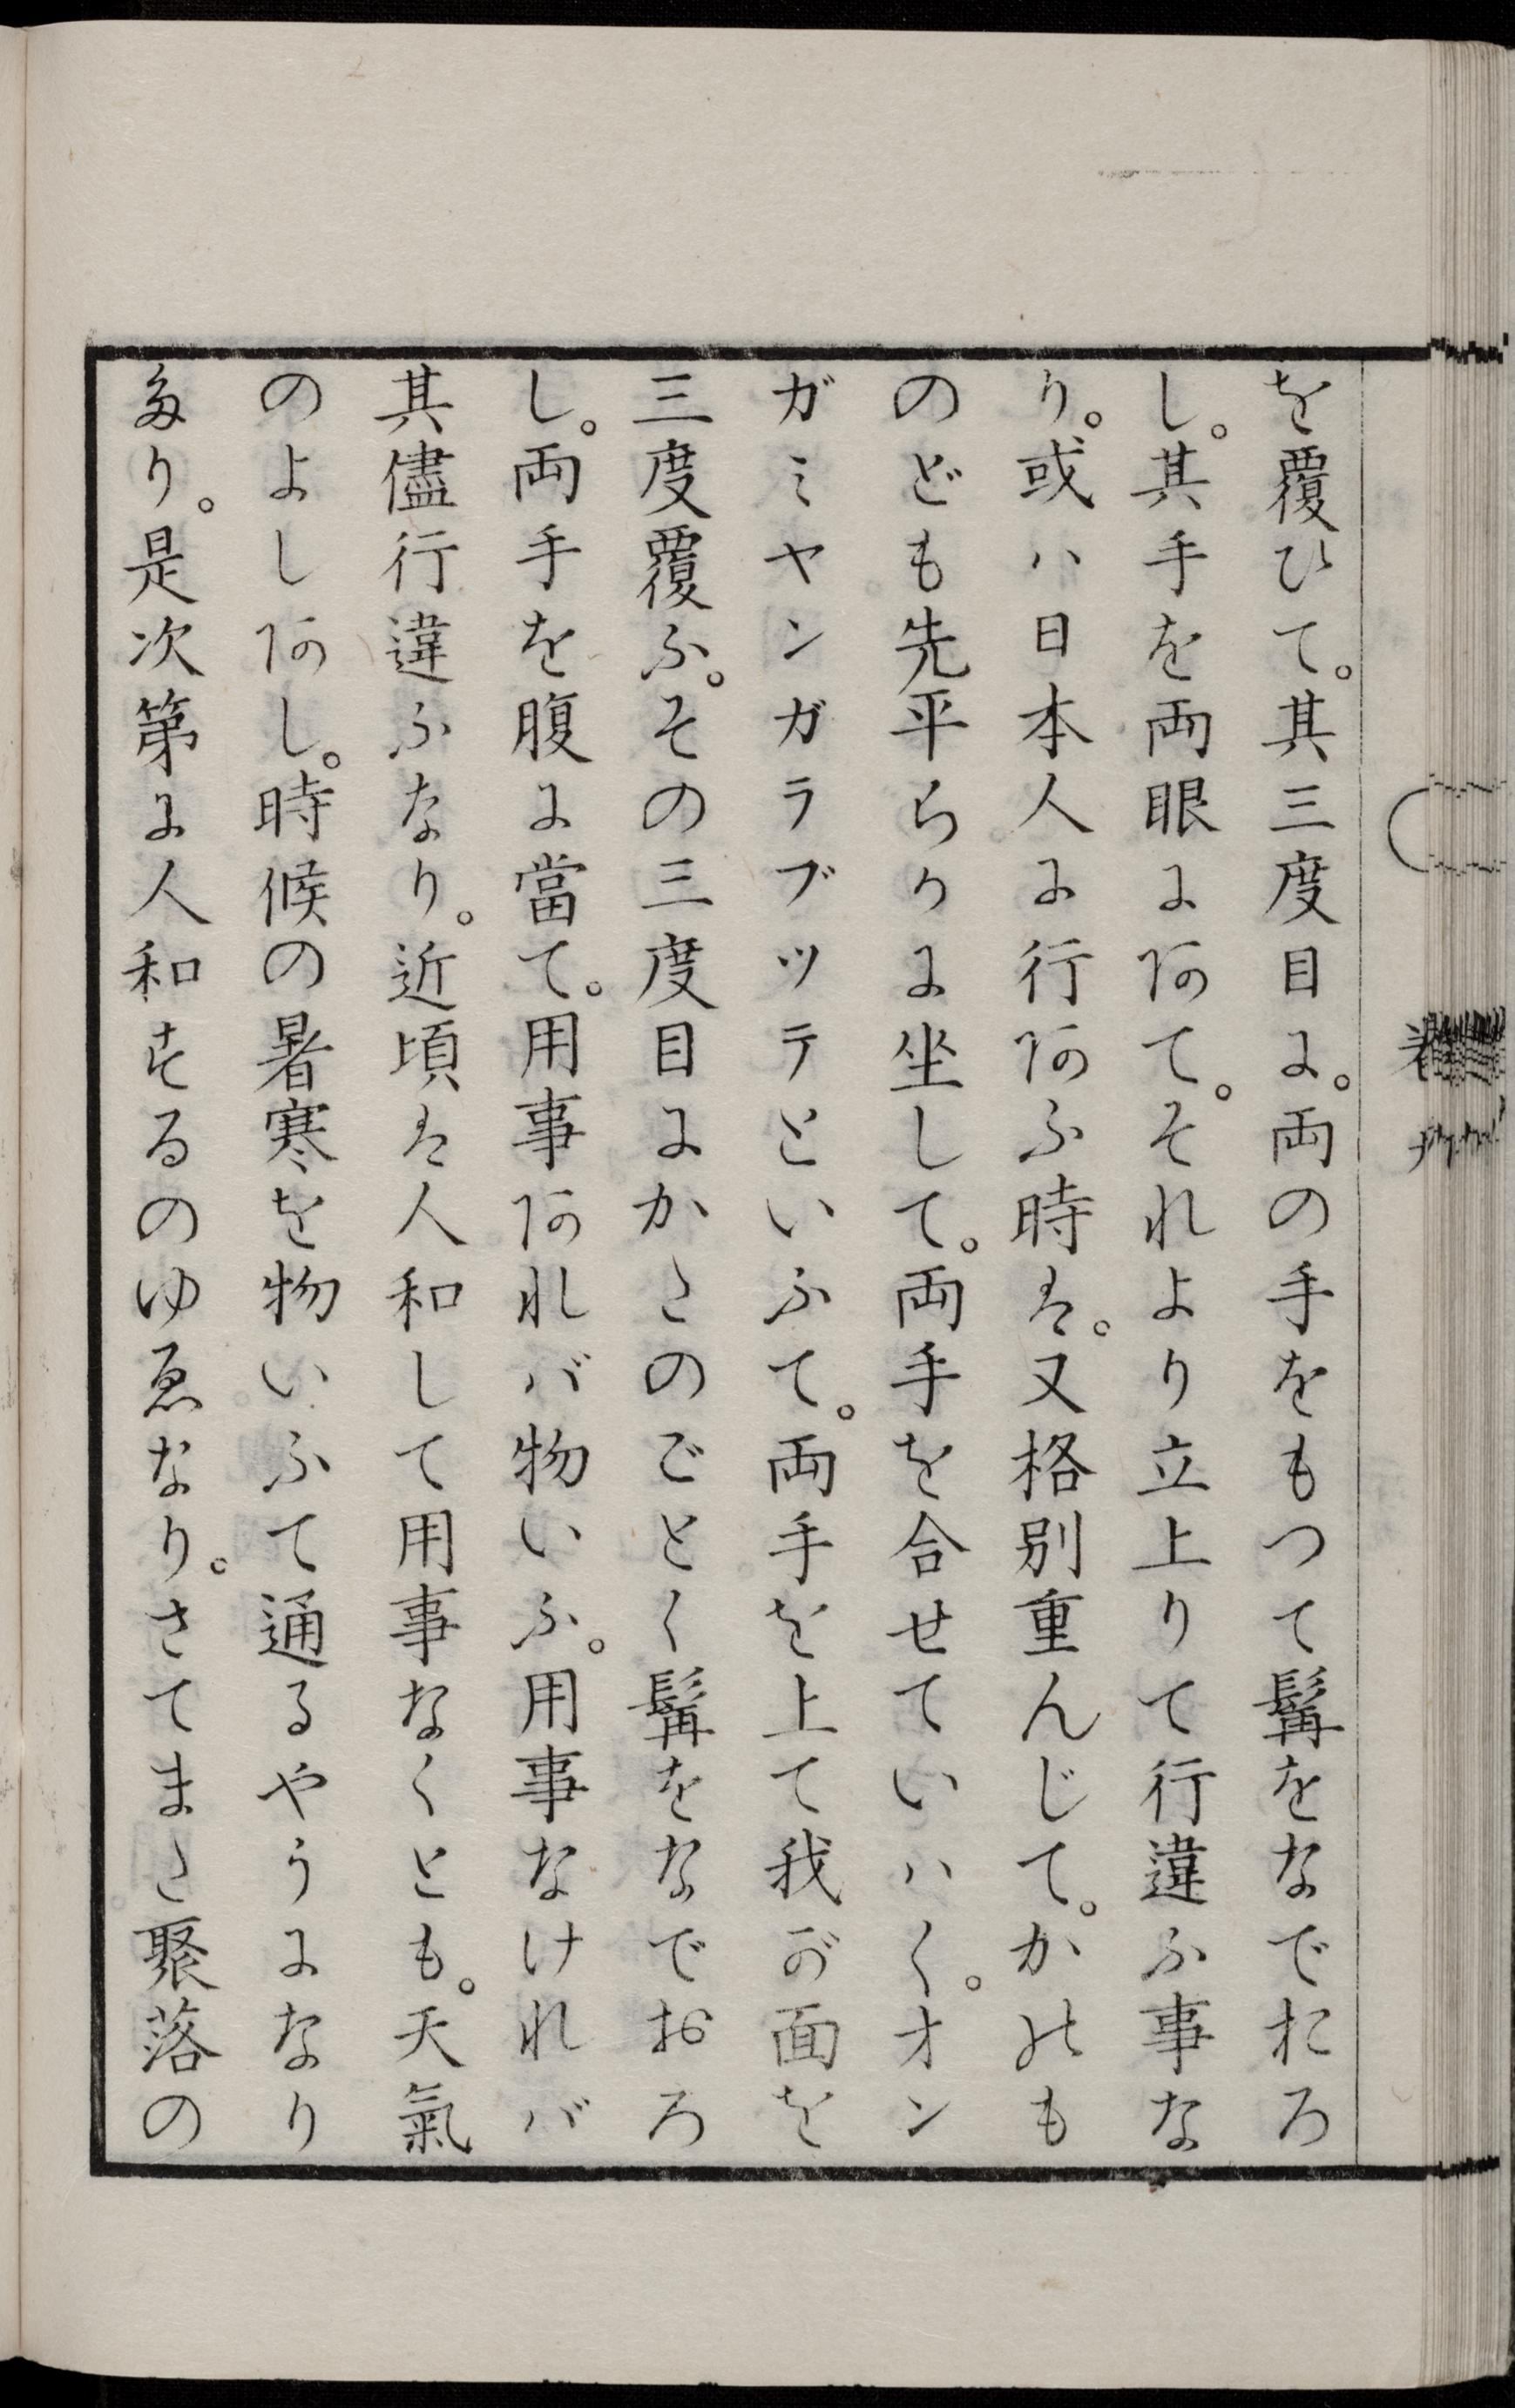 を覆ひて。其三度目に。両の手をもつて髯をなでおろ
し。其手を両眼にあてて。それより立上りて行違ふ事な
り。或ハ日本人に行あふ時は。又格別重んじて。かのも
のども先平らかに坐して。両手を合せていハく。オン
ガミヤンガラブツテといふて。両手を上て我が面を
三度覆ふ。その三度目にかくのごとく髯をなでおろ
し。両手を腹に當て。用事あれバ物いふ。用事なけれバ
其儘行違ふなり。近頃は人和して用事なくとも。天氣
のよしあし。時候の暑寒を物いふて通るやうになり
たり。是次第に人和するのゆゑなり。さてまた聚落の